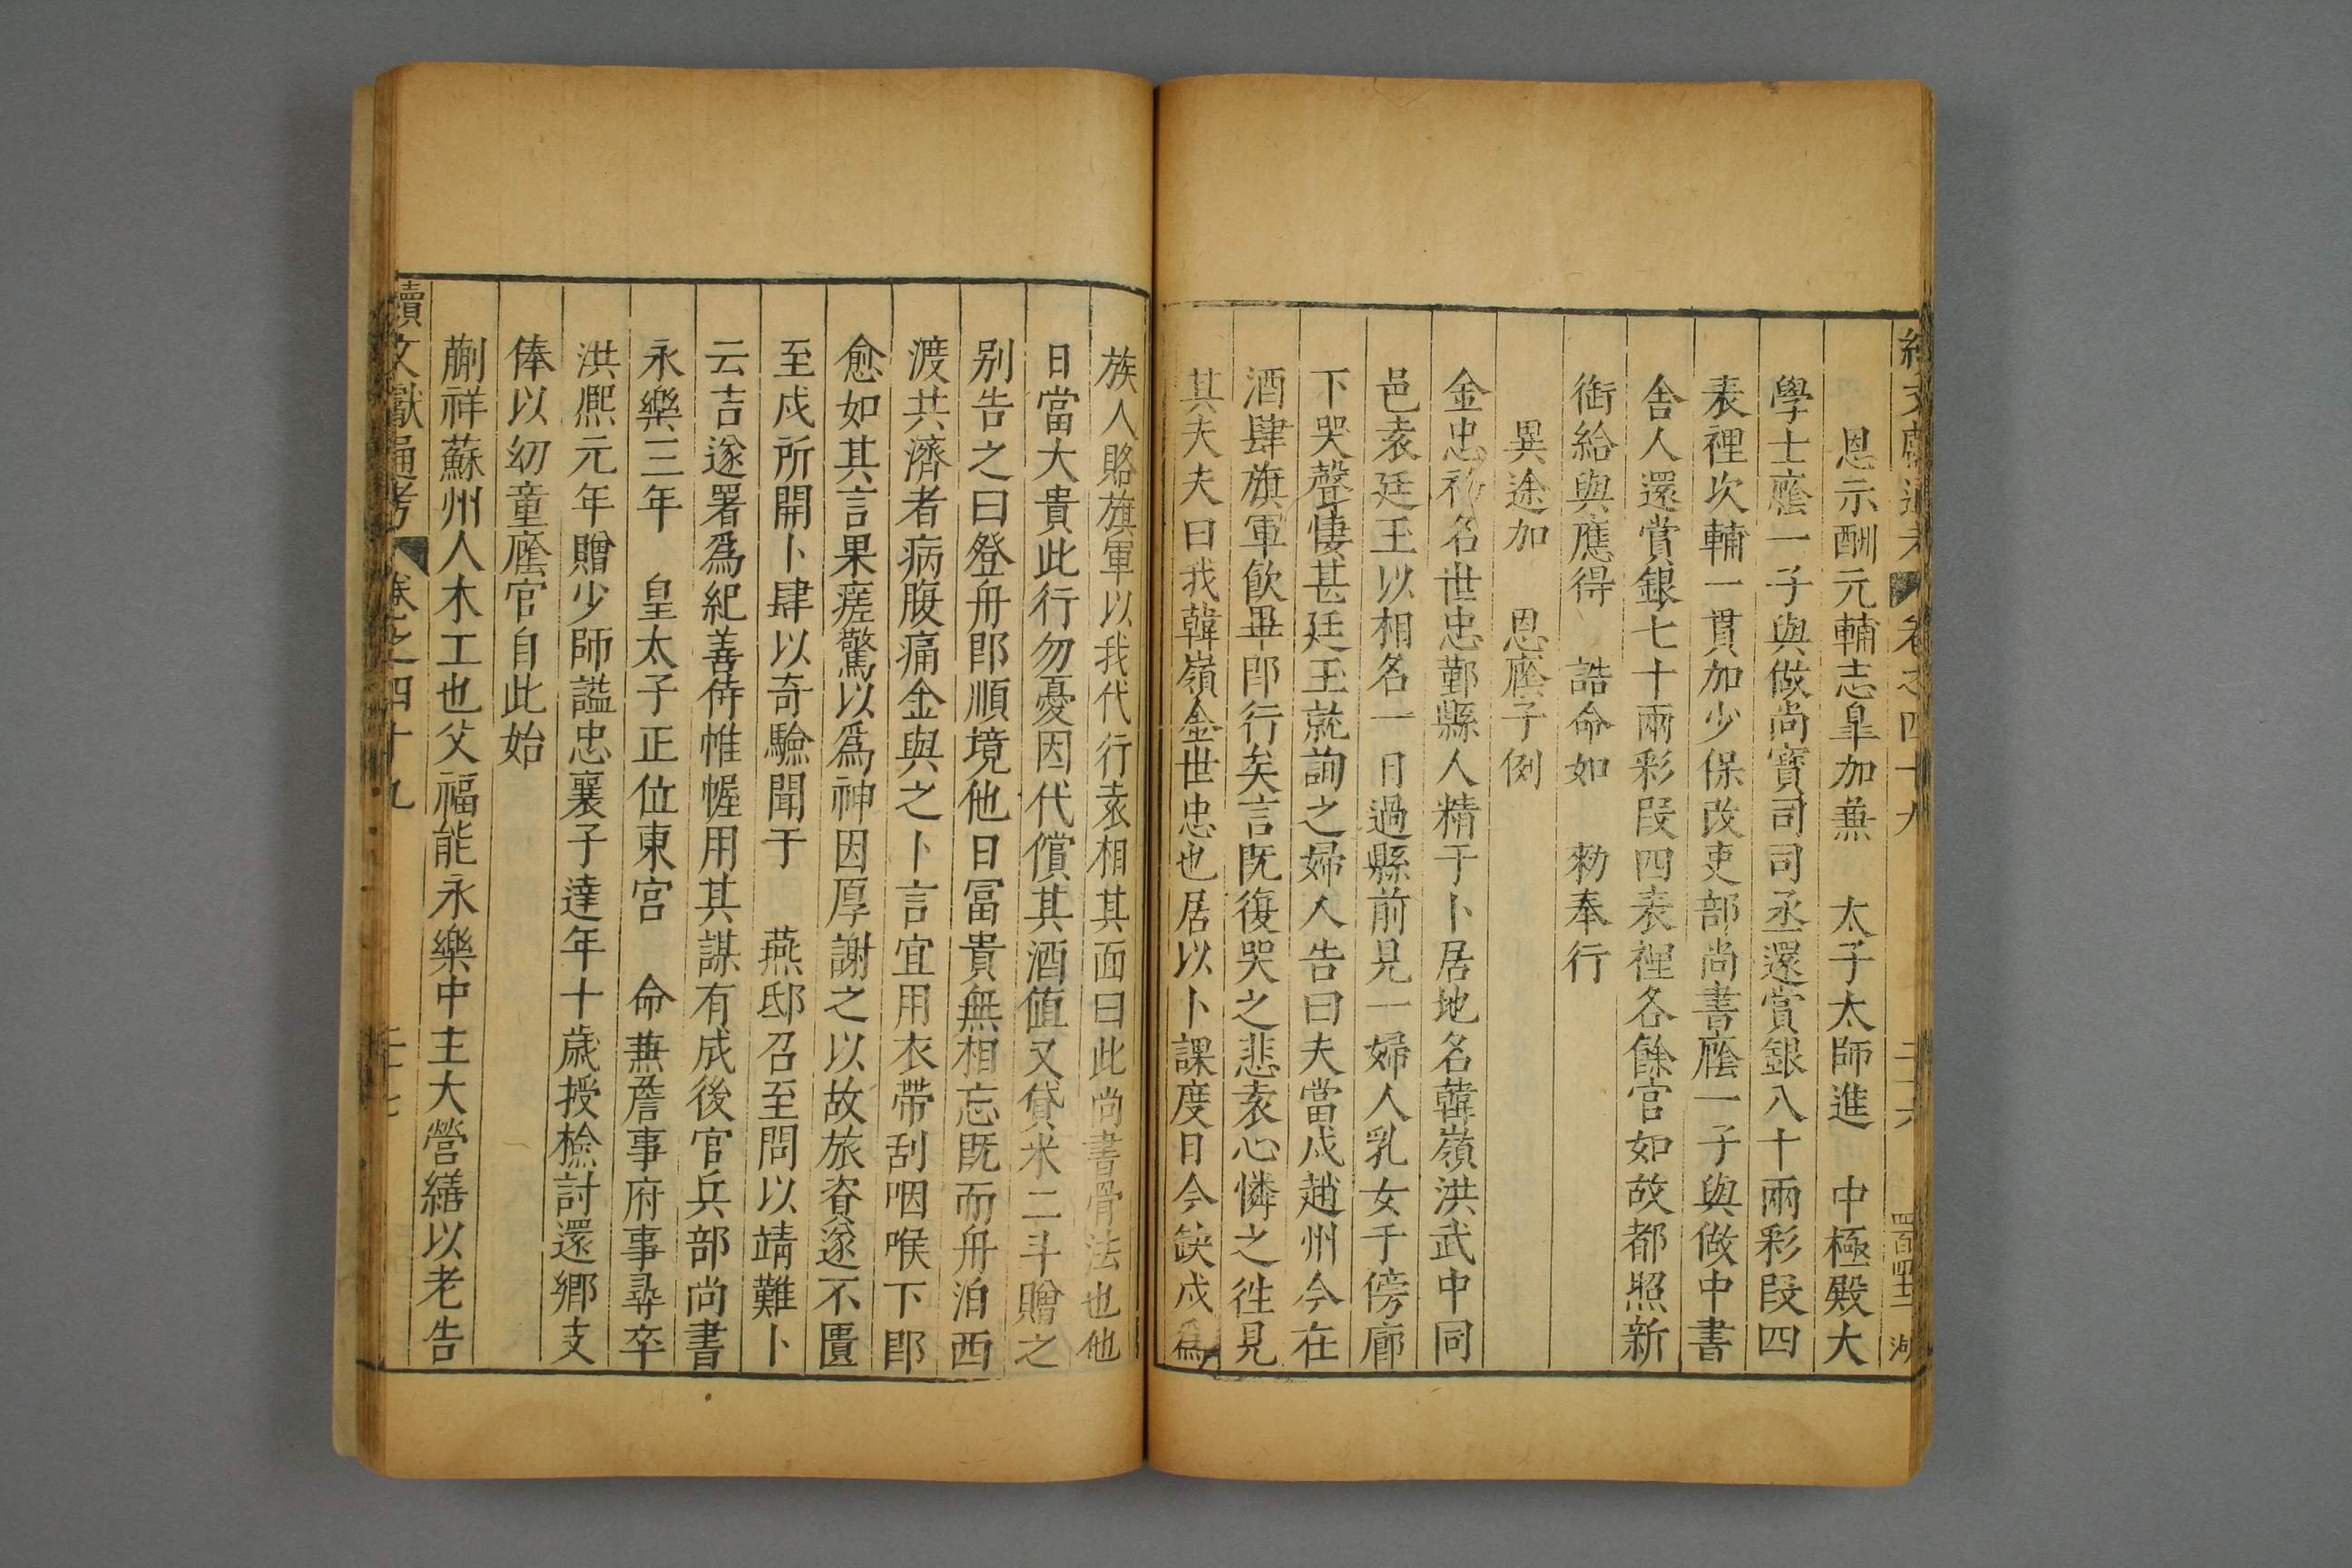 續文獻通考 卷之四十九 二十六 四百四十二 湖
恩示酬元輔志臯加兼 太子太師進 中極殿大
學士廕一子與做尚寶司司丞還賞銀八十兩彩段四
表裡次輔一貫加少保改吏部尚書廕一子與做中書
舍人還賞銀七十兩彩段四表裡各餘官如故都照新
銜給與應得 誥命如 勑奉行
異途加 恩廕子例
金忠初名世忠鄞縣人精于卜居地名韓嶺洪武中同
邑袁廷玉以相名一日過縣前見一婦人乳女于傍廊
下哭聲悽甚廷玉就詢之婦人告曰夫當戍趙州今在
酒肆旗軍飲畢即行矣言既復哭之悲袁心憐之徃見
其夫夫曰我韓嶺金世忠也居以卜課度日今缺戍爲
族人賂旗軍以我代行袁相其面曰此尚書骨法也他
日當大貴此行勿憂因代償其酒値又貸米二斗贈之
别告之曰登舟即順境他日冨貴無相忘既而舟泊西
渡共濟者病腹痛金與之卜言宜用衣帶刮咽喉下即
愈如其言果瘥驚以爲神因厚謝之以故旅資遂不匱
至戍所開卜肆以奇驗聞于 燕邸召至問以靖難卜
云吉遂署爲紀善侍帷幄用其謀有成後官兵部尚書
永樂三年 皇太子正位東宫 命兼詹事府事尋卒
洪熈元年贈少師謚忠襄子達年十歲授檢討還鄉支
俸以幼童廕官自此始
蒯祥蘇州人木工也父福能永樂中主大營繕以老告
續文獻通考 卷之四十九 二十七